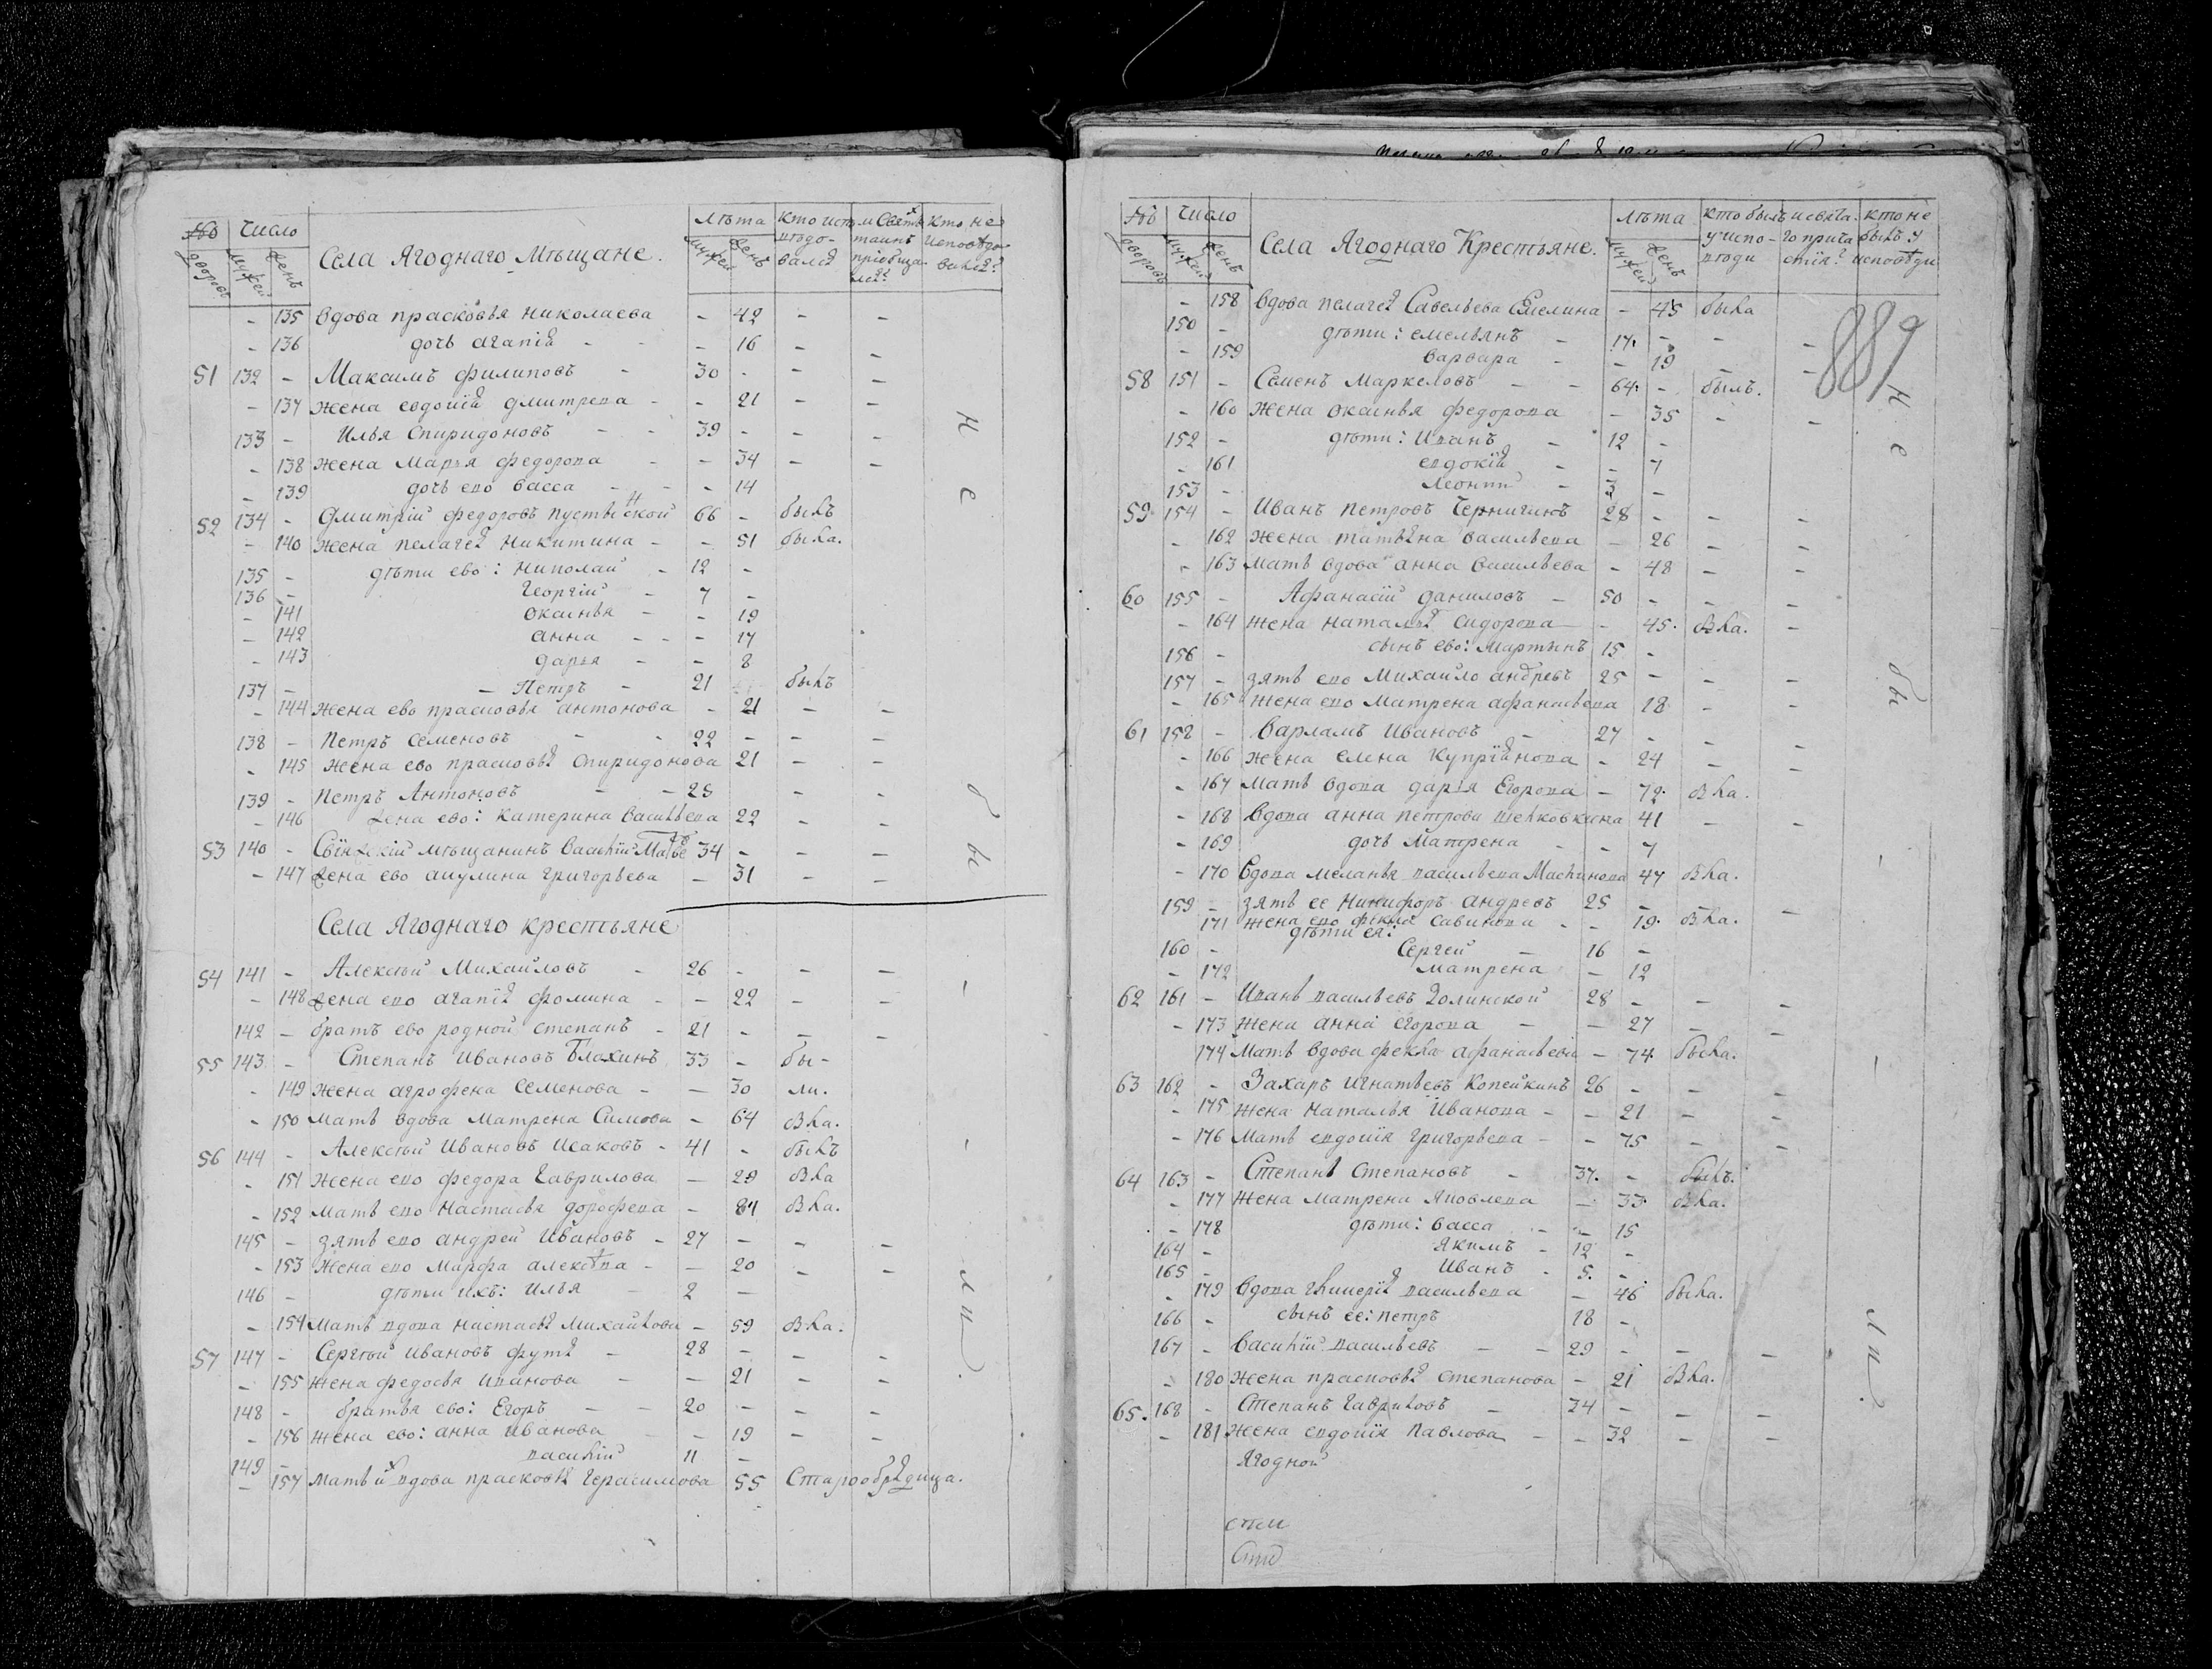 № Число Села Ягоднаго Мѣщане. лѣта
дворовъ мужей женъ мужей женъ
- 135 вдова прасковья николаева - 42 - -
- 136 дочь агапія - - - 16 - -
51 132 - Максимъ филиповъ - 30 - - -
- 137 жена евдокія дмитрева - - 21 - -
133 - Илья Спиридоновъ - - 39 - - -
- 138 жена Марья федорова - - 34 - -
- 139 дочь ево васса - - - 14
52 134 - Дмитрій федоровъ 66 - былъ
- 140 жена пелагея Никитина - - 51 была.
135 - дѣти ево: Николай - 12 -
136 - Георгій - 7 -
- 141 Оксинья - - 19
- 142 анна - - - 17
- 143 дарья - - 8
137 - - Петръ - 21 былъ
- 144 жена ево прасковья антонова - 21 - -
138 - Петръ Семеновъ - - 22 - - -
- 145 жена ево прасковья Спиридонова 21 - -
139 - Петръ Антоновъ - - 25 - -
- 146 жена ево: Катерина Васильева 22 - -
53 140 - мѣщанинъ Василій 34 - - -
- 147 жена ево акулина григорьева - 31 - -
Села Ягоднаго крестьяне
54 141 - Алексѣй Михайловъ - 26 - - -
- 148 жена ево агапія фомина - - 22 - -
142 - братъ ево родной степанъ - 21 - - -
55 143 - Степанъ Ивановъ Блахинъ 33 - бы-
- 149 жена агрофена Семенова - - 30 ли.
- 150 мать вдова Матрена - 64 была.
56 144 - Алексѣй Ивановъ Исаковъ - 41 - былъ
- 151 жена ево федора Гаврилова - 28 была
- 152 мать ево Настасья дорофева - 81 была.
145 - зять ево андрей Ивановъ - 27 - - -
- 153 жена ево Марфа алексѣва - - 20 - -
146 - дѣти ихъ: Илья - 2 -
- 154 мать вдова настасья Михайлова - 59 была.
57 147 - Сергѣй Ивановъ - 28 - - -
- 155 жена федосья иванова - - 21 - -
148 - братья ево: Егоръ - - 20 - - -
- 156 жена ево: анна иванова - - 19 - -
149 - василій 11 -
- 157 мать и вдова прасковья Герасимова 55 Старообрядица.
не
бы
-
-
ли.
№ Число Села Ягоднаго Крестьяне. лѣта кто былъ и свята- кто не
дворовъ мужей женъ мужей женъ у испо- го прича былъ у
вѣди стія? исповѣди
889
- 158 вдова пелагея Савельева Емелина - 45 была
150 - дѣти: емельянъ - 17. - - -
- 159 варвара - - 19 - -
58 151 - Семенъ Маркеловъ - - 64. - былъ.
- 160 жена оксинья федорова - 35 - -
152 - дѣти: Иванъ - 12 -
- 161 евдокія - - 7
153 - Леонтій - 3 -
59 154 - Иванъ Петровъ 28 - - -
- 162 жена татьяна васильева - 26 - -
- 163 мать вдова анна Васильева - 48 - -
60 155 - Афанасій даниловъ - 50 - - -
- 164 жена наталья сидорова - 45. была. -
156 - сынъ ево: Мартынъ 15 -
157 - зять ево Михайло андревъ 25 - - -
- 165 жена ево Матрена афанасьева 18 - -
61 158 - Варламъ Ивановъ - 27 - - -
- 166 жена елена Купріянова - 24 - -
- 167 мать вдова дарья Егорова - 72. была.
- 168 вдова анна петрова 41 - -
- 169 дочь Матрена - - 7
- 170 вдова меланья васильева 47 была.
159 - зять ее Никифоръ андревъ 25 - - -
171 жена ево фекла савинова - - 19. была.
дѣти ея:
160 - Сергей - 16 -
- 172 матрена - 12
62 161 - Иванъ васильевъ Долинской 28 - - -
- 173 жена анна егорова - - 27 - -
174 мать вдова фекла афанасьева - 74. была.
63 162 - Захаръ игнатьевъ Копейкинъ 26 - - -
- 175 жена Наталья Иванова - - 21 - -
- 176 мать евдокія григорьева - - 75 - -
64 163 - Степанъ Степановъ - 37. - былъ.
- 177 жена матрена яковлева - 33. была.
- 178 дѣти: васса - - 15
164 - якимъ - 12 -
165 - Иванъ - 5. -
- 179 вдова гликерія васильева - 46 была.
166 - сынъ ее: петръ 18 -
167 - василій васильевъ - - 29 - - -
- 180 жена прасковья степанова - 21 была.
65. 168 - Степанъ Гавриловъ - 34 - - -
- 181 жена евдокія Павлова - - 32 - -
Ягодной
не
бы
-
-
ли.